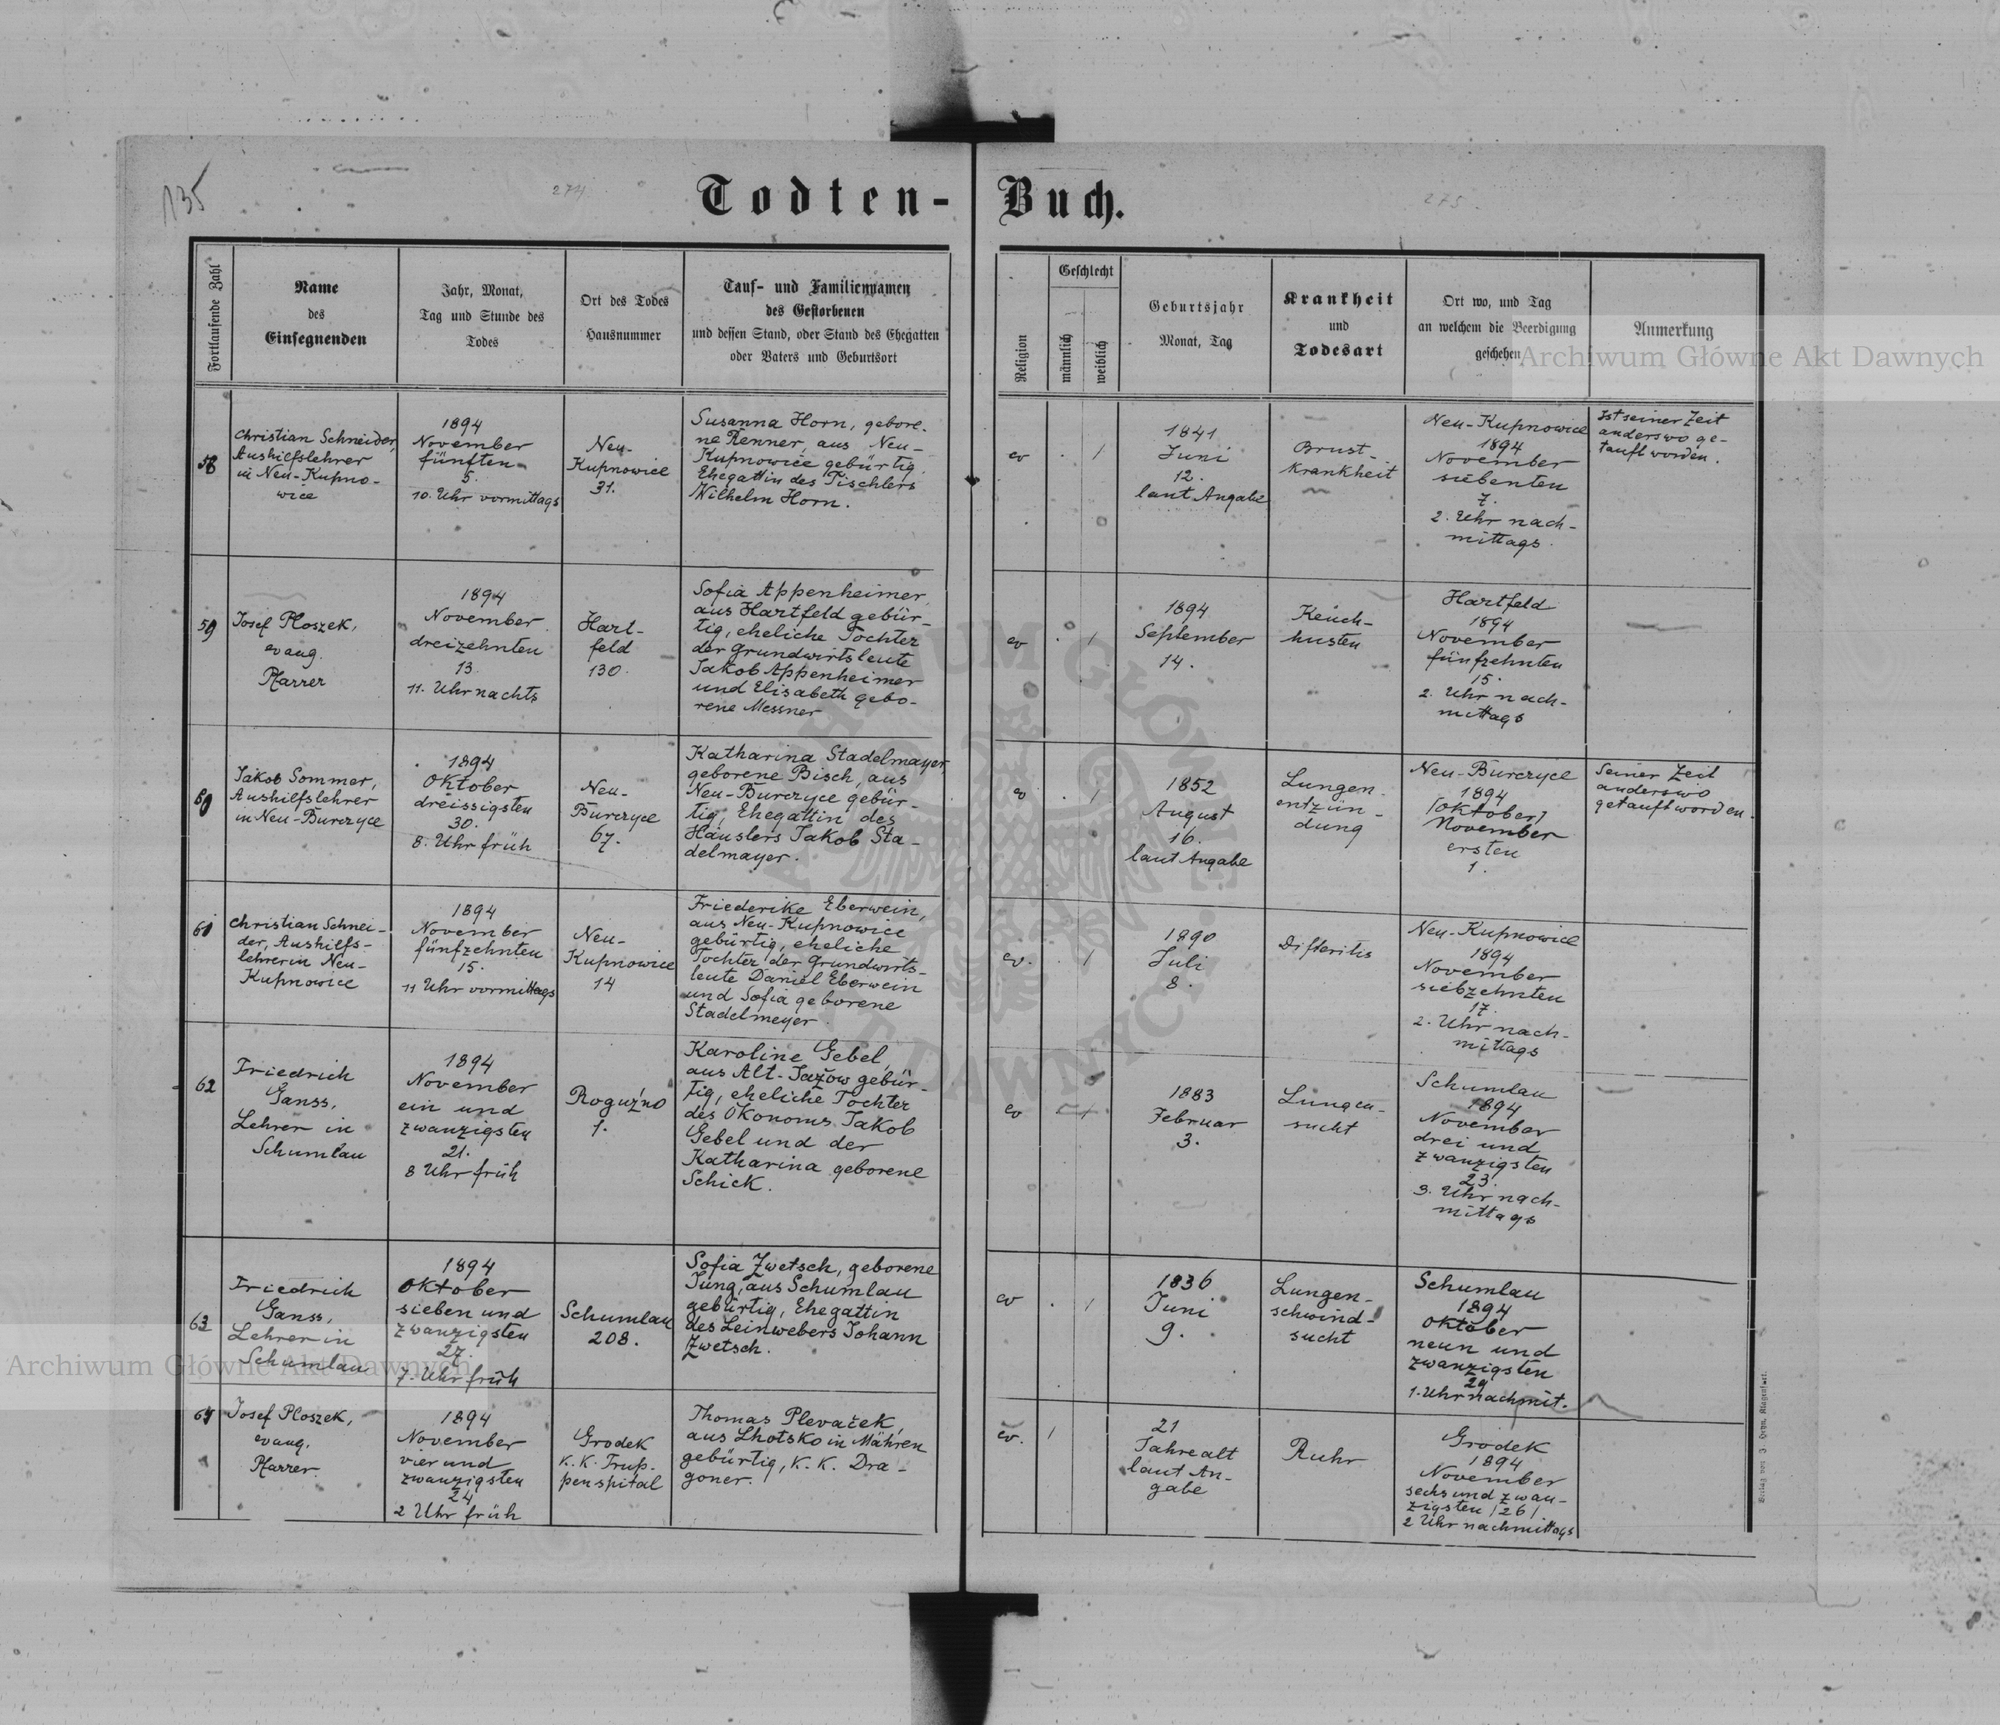 135
274
Todten-Buch.
275
Fortlaufende Zahl
Name
des
Einsegnenden
Jahr, Monat,
Tag und Stunde des
Todes
Ort des Todes
Hausnummer
Tauf- und Familiennamen
des Gestorbenen
und dessen Stand, oder Stand des Ehegatten
oder Vaters und Geburtsort
Religion
Geschlecht
männlich
weiblich
Geburtsjahr
Monat, Tag
Krankheit
und
Todesart
Ort wo, und Tag
an welchem die Beerdigung
geschehen
Anmerkung
58
Christian Schneider,
Aushilfslehrer
in Neu-Kupno-
wice
1894
November
fünften
5.
10. Uhr vormittags
Neu-
Kupnowice
31.
Susanna Horn, gebore-
ne Renner, aus Neu-
Kupnowice gebürtig
Ehegattin des Tischlers
Wilhelm Horn.
ev
1
1841
Juni
12.
laut Angabe
Brust-
krankheit
Neu-Kupnowice
1894
November
siebenten
7.
2. Uhr nach-
mittags.
Ist seiner Zeit
anderswo ge-
tauft worden.
59
Josef Ploszek,
evang.
Pfarrer
1894
November
dreizehnten
13
11. Uhr nachts
Hart-
feld
130.
Sofia Appenheimer
aus Hartfeld gebür-
tig, eheliche Tochter
der Grundwirtsleute
Jakob Appenheimer
und Elisabeth gebo-
rene Messner
ev
1
1894
September
14.
Keuch-
husten
Hartfeld
1894
November
fünfzehnten
15.
2. Uhr nach-
mittags
60
Jakob Sommer,
Aushilfslehrer
in Neu-Burczyce
1894
Oktober
dreissigsten
30.
8. Uhr früh
Neu-
Burczyce
67.
Katharina Stadelmayer,
geborene Bisch, aus
Neu-Burczyce gebür-
tig, Ehegattin des
Häuslers Jakob Sta-
delmayer.
ev
1
1852
August
16.
laut Angabe
Lungen-
entzün-
dung
Neu-Burczyce
1894
[Oktober]
November
ersten
1.
Seiner Zeit
anderswo
getauft worden.
61
Christian Schnei-
der, Aushilfs-
lehrer in Neu-
Kupnowice
1894
November
fünfzehnten
15.
11 Uhr vormittags
Neu-
Kupnowice
14
Friederike Eberwein,
aus Neu-Kupnowice
gebürtig, eheliche
Tochter der Grundwirts-
leute Daniel Eberwein
und Sofia geborene
Stadelmeyer.
ev.
1
1890
Juli
8.
Difteritis
Neu-Kupnowice
1894
November
siebzehnten
17.
2. Uhr nach-
mittags
62
Friedrich
Ganss,
Lehrer in
Schumlau
1894
November
ein und
zwanzigsten
21.
8 Uhr früh
Roguźno
1.
Karoline Gebel,
aus Alt-Jażow gebür-
tig, eheliche Tochter
des Ökonoms Jakob
Gebel und der
Katharina geborene
Schick.
ev
1
1883
Februar
3.
Lungen-
sucht
Schumlau
1894
November
drei und
zwanzigsten
23.
3. Uhr nach-
mittags
63
Friedrich
Ganss,
Lehrer in
Schumlau
1894
Oktober
sieben und
zwanzigsten
27.
7. Uhr früh
Schumlau
208.
Sofia Zwetsch, geborene
Jung, aus Schumlau
gebürtig, Ehegattin
des Leinwebers Johann
Zwetsch.
ev
1
1836
Juni
9.
Lungen-
schwind-
sucht
Schumlau
1894
Oktober
neun und
zwanzigsten
29
1. Uhr nachmit.
64
Josef Ploszek,
evang.
Pfarrer.
1894
November
vier und
zwanzigsten
24
2 Uhr früh
Grodek
K.K. Trup-
penspital
Thomas Plevaček,
aus Lhotsko in Mähren
gebürtig, K. K. Dra-
goner.
ev.
1
21
Jahre alt
laut An-
gabe
Ruhr
Grodek
1894
November
sechs und zwan-
zigsten /26/
2 Uhr nachmittags
Verlag von J. Heyn, Klagenfurt.
Archiwum Główne Akt Dawnych
Archiwum Główne Akt Dawnych
ARCHIWUM GŁÓWNE AKT DAWNYCH